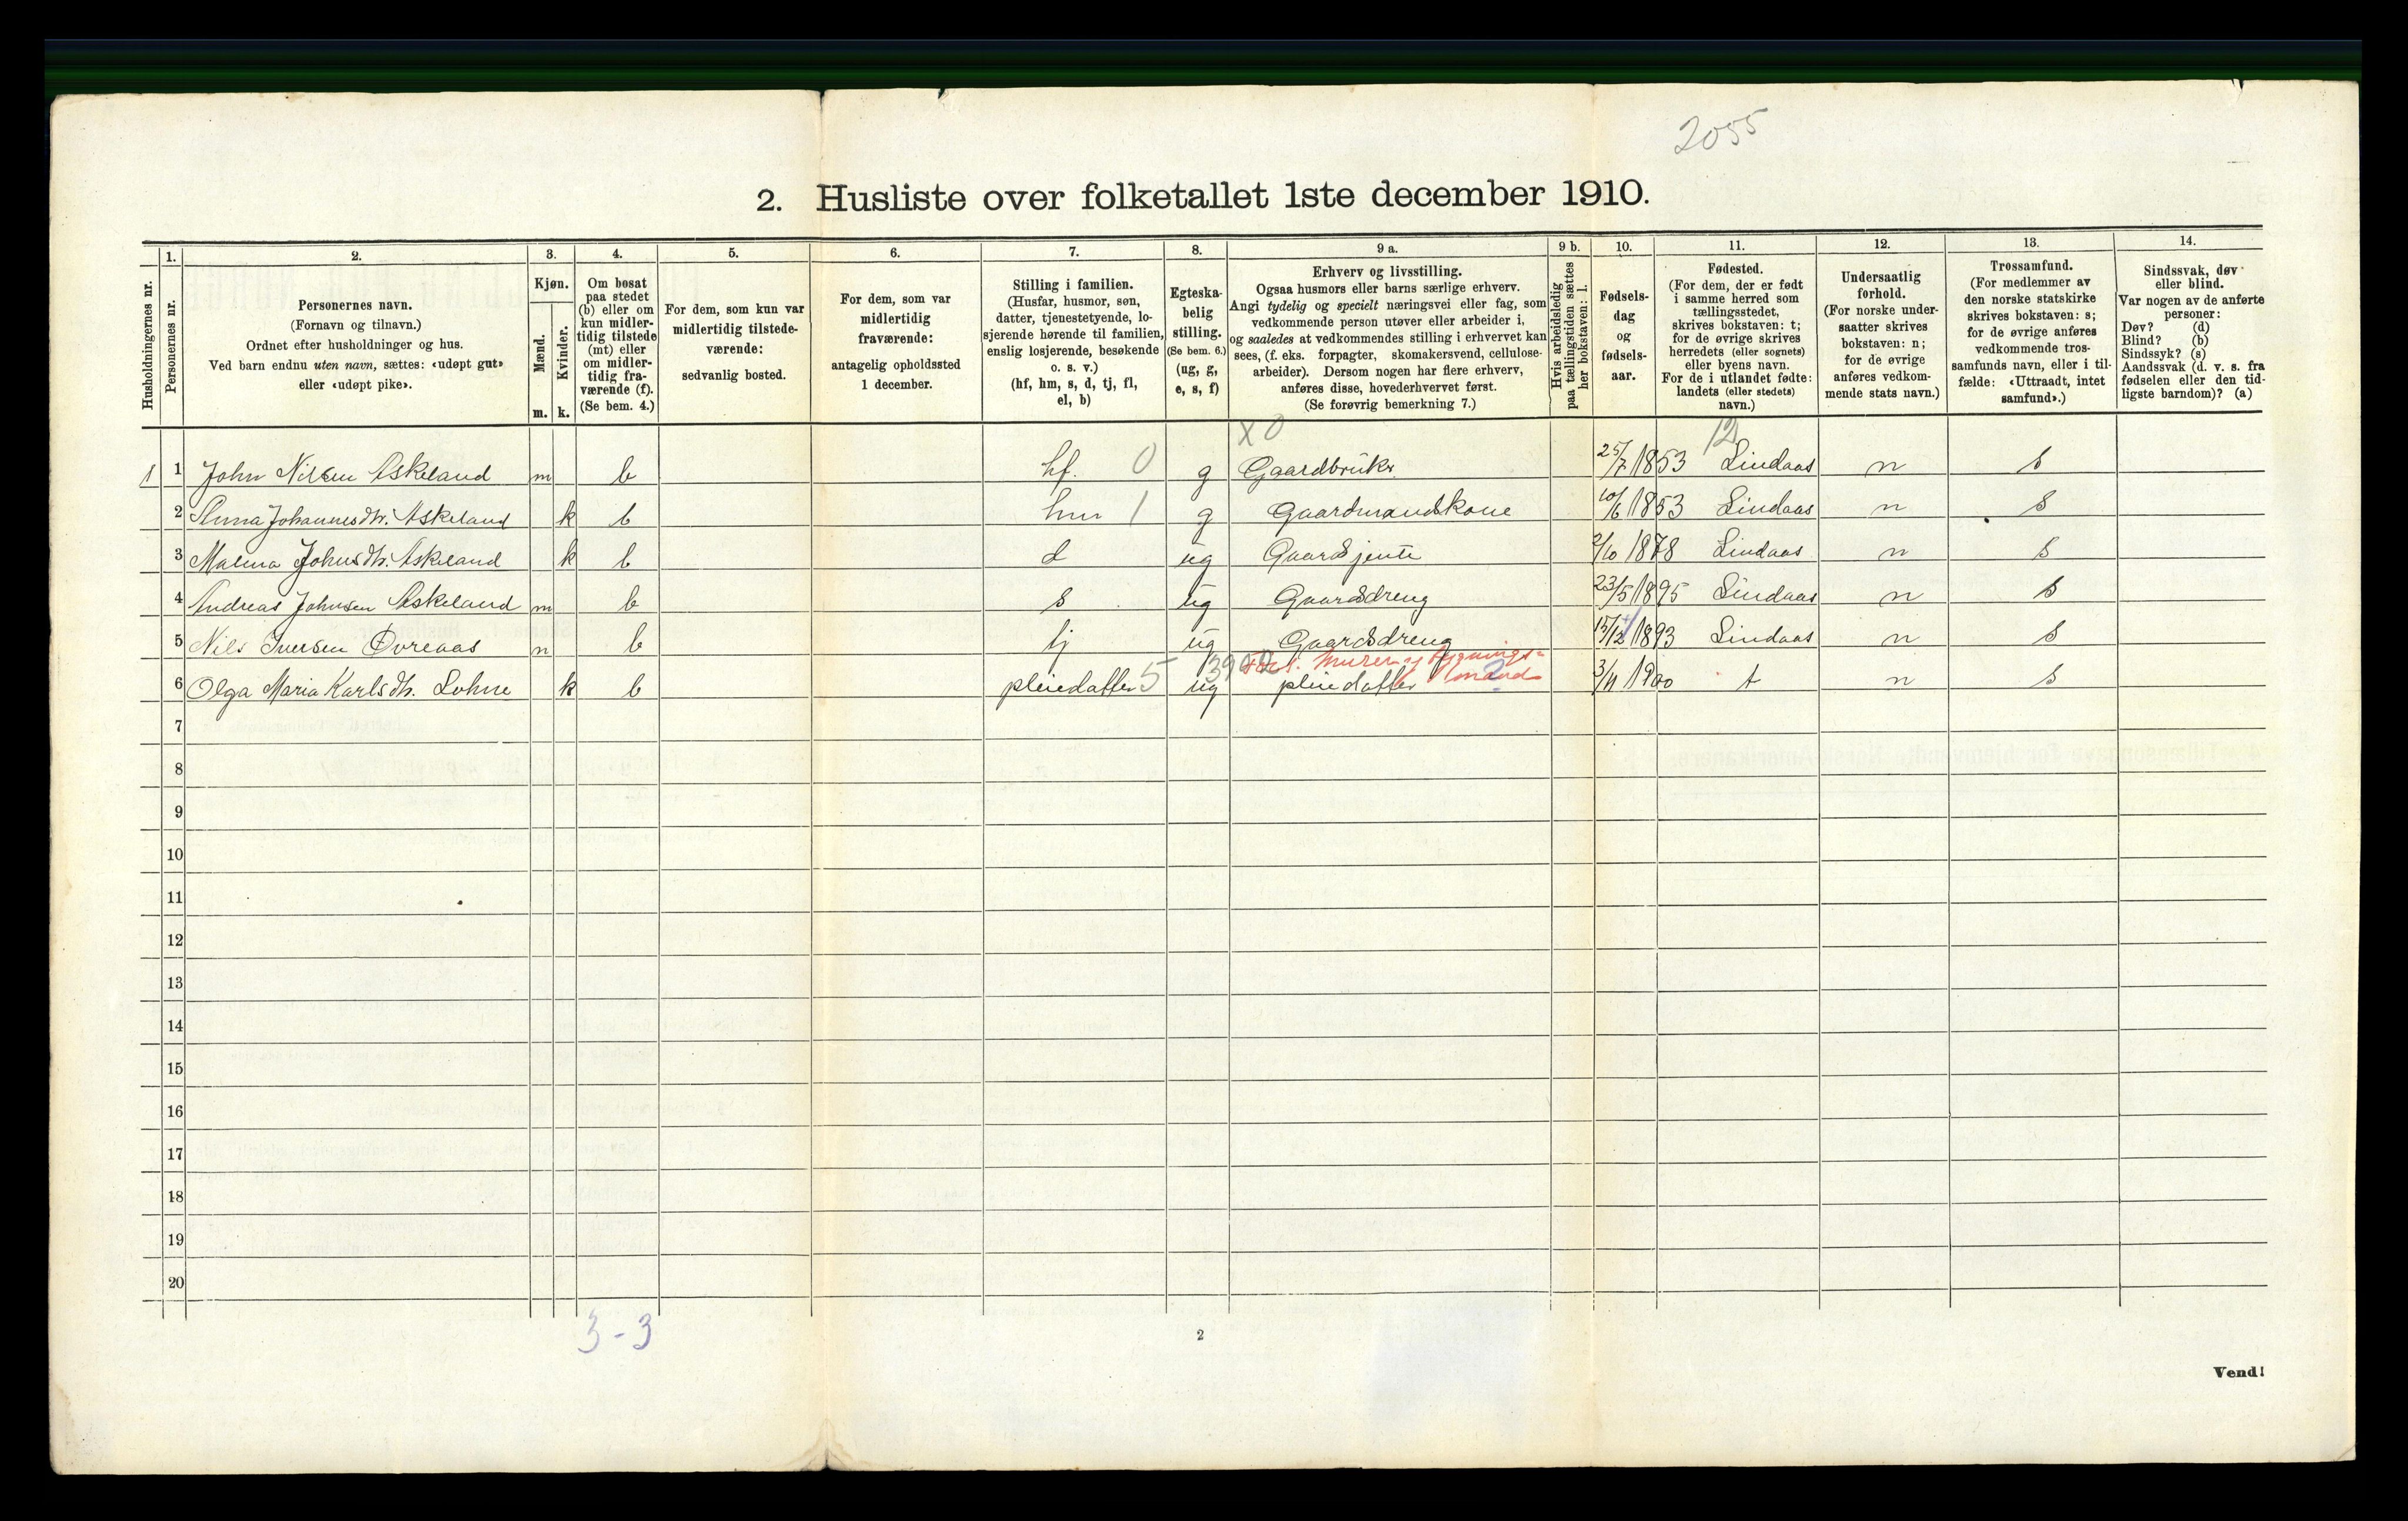 2055
2. Husliste over folketallet 1ste december 1910.
Husholdningernes nr.
1.
Personernes nr.
2.
Personernes navn.
(Fornavn og tilnavn.)
Ordnet efter husholdninger og hus.
Ved barn endnu uten navn, sættes: «udøpt gut»
eller «udøpt pike».
3.
Kjøn.
Mænd.
Kvinder.
m. k.
4.
Om bosat
paa stedet
(b) eller om
kun midler-
tidig tilstede
(mt) eller
om midler-
tidig fra-
værende (f).
(Se bem. 4.)
5.
For dem, som kun var
midlertidig tilstede-
værende:
sedvanlig bosted.
6.
For dem, som var
midlertidig
fraværende:
antagelig opholdssted
1 december.
7.
Stilling i familien.
(Husfar, husmor, søn,
datter, tjenestetyende, lo-
sjerende hørende til familien,
enslig losjerende, besøkende
o. s. v.)
(hf, hm, s, d, tj, fl,
el, b)
8.
Egteska-
belig
stilling.
(Se bem. 6.)
(ug, g,
e, s, f)
9 a.
Erhverv og livsstilling.
Ogsaa husmors eller barns særlige erhverv.
Angi tydelig og specielt næringsvei eller fag, som
vedkommende person utøver eller arbeider i,
og saaledes at vedkommendes stilling i erhvervet kan
sees, (f. eks. forpagter, skomakersvend, cellulose-
arbeider). Dersom nogen har flere erhverv,
anføres disse, hovederhvervet først.
(Se forøvrig bemerkning 7.)
9 b.
Hvis arbeidsledig
paa tællingstiden sættes
her bokstaven: l.
10.
Fødsels-
dag
og
fødsels-
aar.
11.
Fødested.
(For dem, der er født
i samme herred som
tællingsstedet,
skrives bokstaven: t;
for de øvrige skrives
herredets (eller sognets)
eller byens navn.
For de i utlandet fødte:
landets (eller stedets)
navn.)
12.
Undersaatlig
forhold.
(For norske under-
saatter skrives
bokstaven: n;
for de øvrige
anføres vedkom-
mende stats navn.)
13.
Trossamfund.
(For medlemmer av
den norske statskirke
skrives bokstaven: s;
for de øvrige anføres
vedkommende tros-
samfunds navn, eller i til-
fælde: «Uttraadt, intet
samfund».)
14.
Sindssvak, døv
eller blind.
Var nogen av de anførte
personer:
Døv? (d)
Blind? (b)
Sindssyk? (s)
Aandssvak (d. v. s. fra
fødselen eller den tid-
ligste barndom)? (a)
x 0 12
1 1 John Nilsen Askeland m b hf. 0 g Gaardbruker 25/7 1853 Lindaas n s
2 Anna Johannesdtr. Askeland k b hm 1 g Gaardmandskone 10/6 1853 Lindaas n s
3 Malena Johnsdtr. Askeland k b d ug Gaardsjente 2/10 1878 Lindaas n s
4 Andreas Johnsen Askeland m b s ug Gaardsdreng 23/5 1895 Lindaas n s
5 Nils Iversen Øvreaas m b tj ug Gaardsdreng 15/12 1893 Lindaas n s
6 Olga Maria Karlsdtr. Lohne k b pleiedatter 5 ug pleiedatter 3/11 1900 t n s
7
8
9
10
11
12
13
14
15
16
17
18
19
20
3-3
2
Vend!